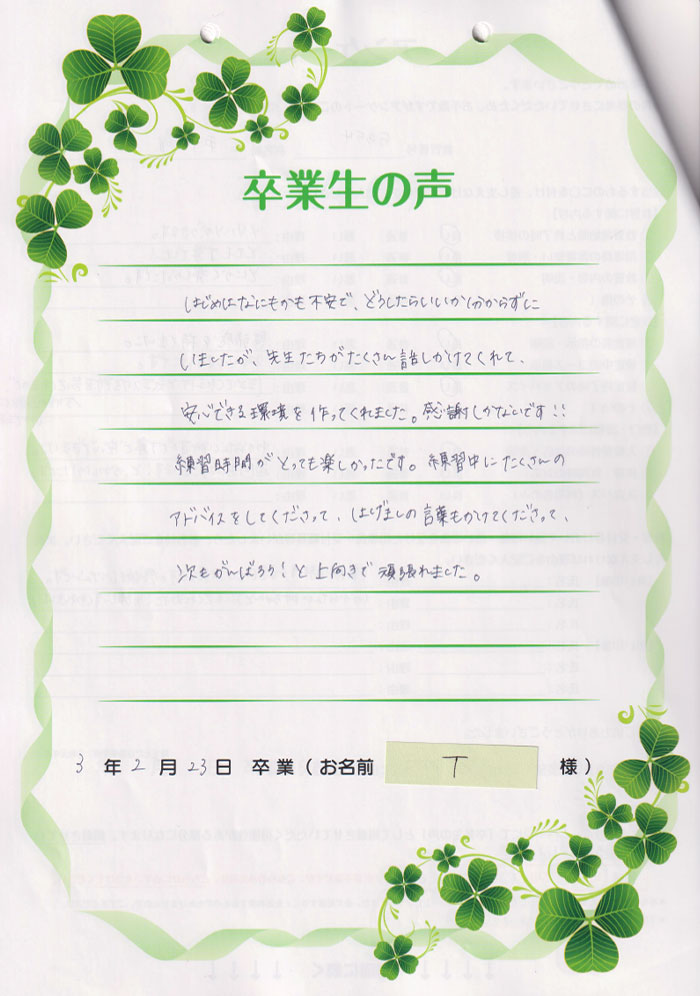 卒業生の声
はじめはなにもかも不安で、どうしたらいいか分からずに
いましたが、先生たちがたくさん話しかけてくれて、
安心できる環境を作ってくれました。感謝しかないです!!
練習時間がとっても楽しかったです。練習中にたくさんの
アドバイスをしてくださって、はげましの言葉もかけてくださって、
次もがんばろう!と上向きで頑張れました。
3 年 2 月 23 日 卒業(お名前 T 様)